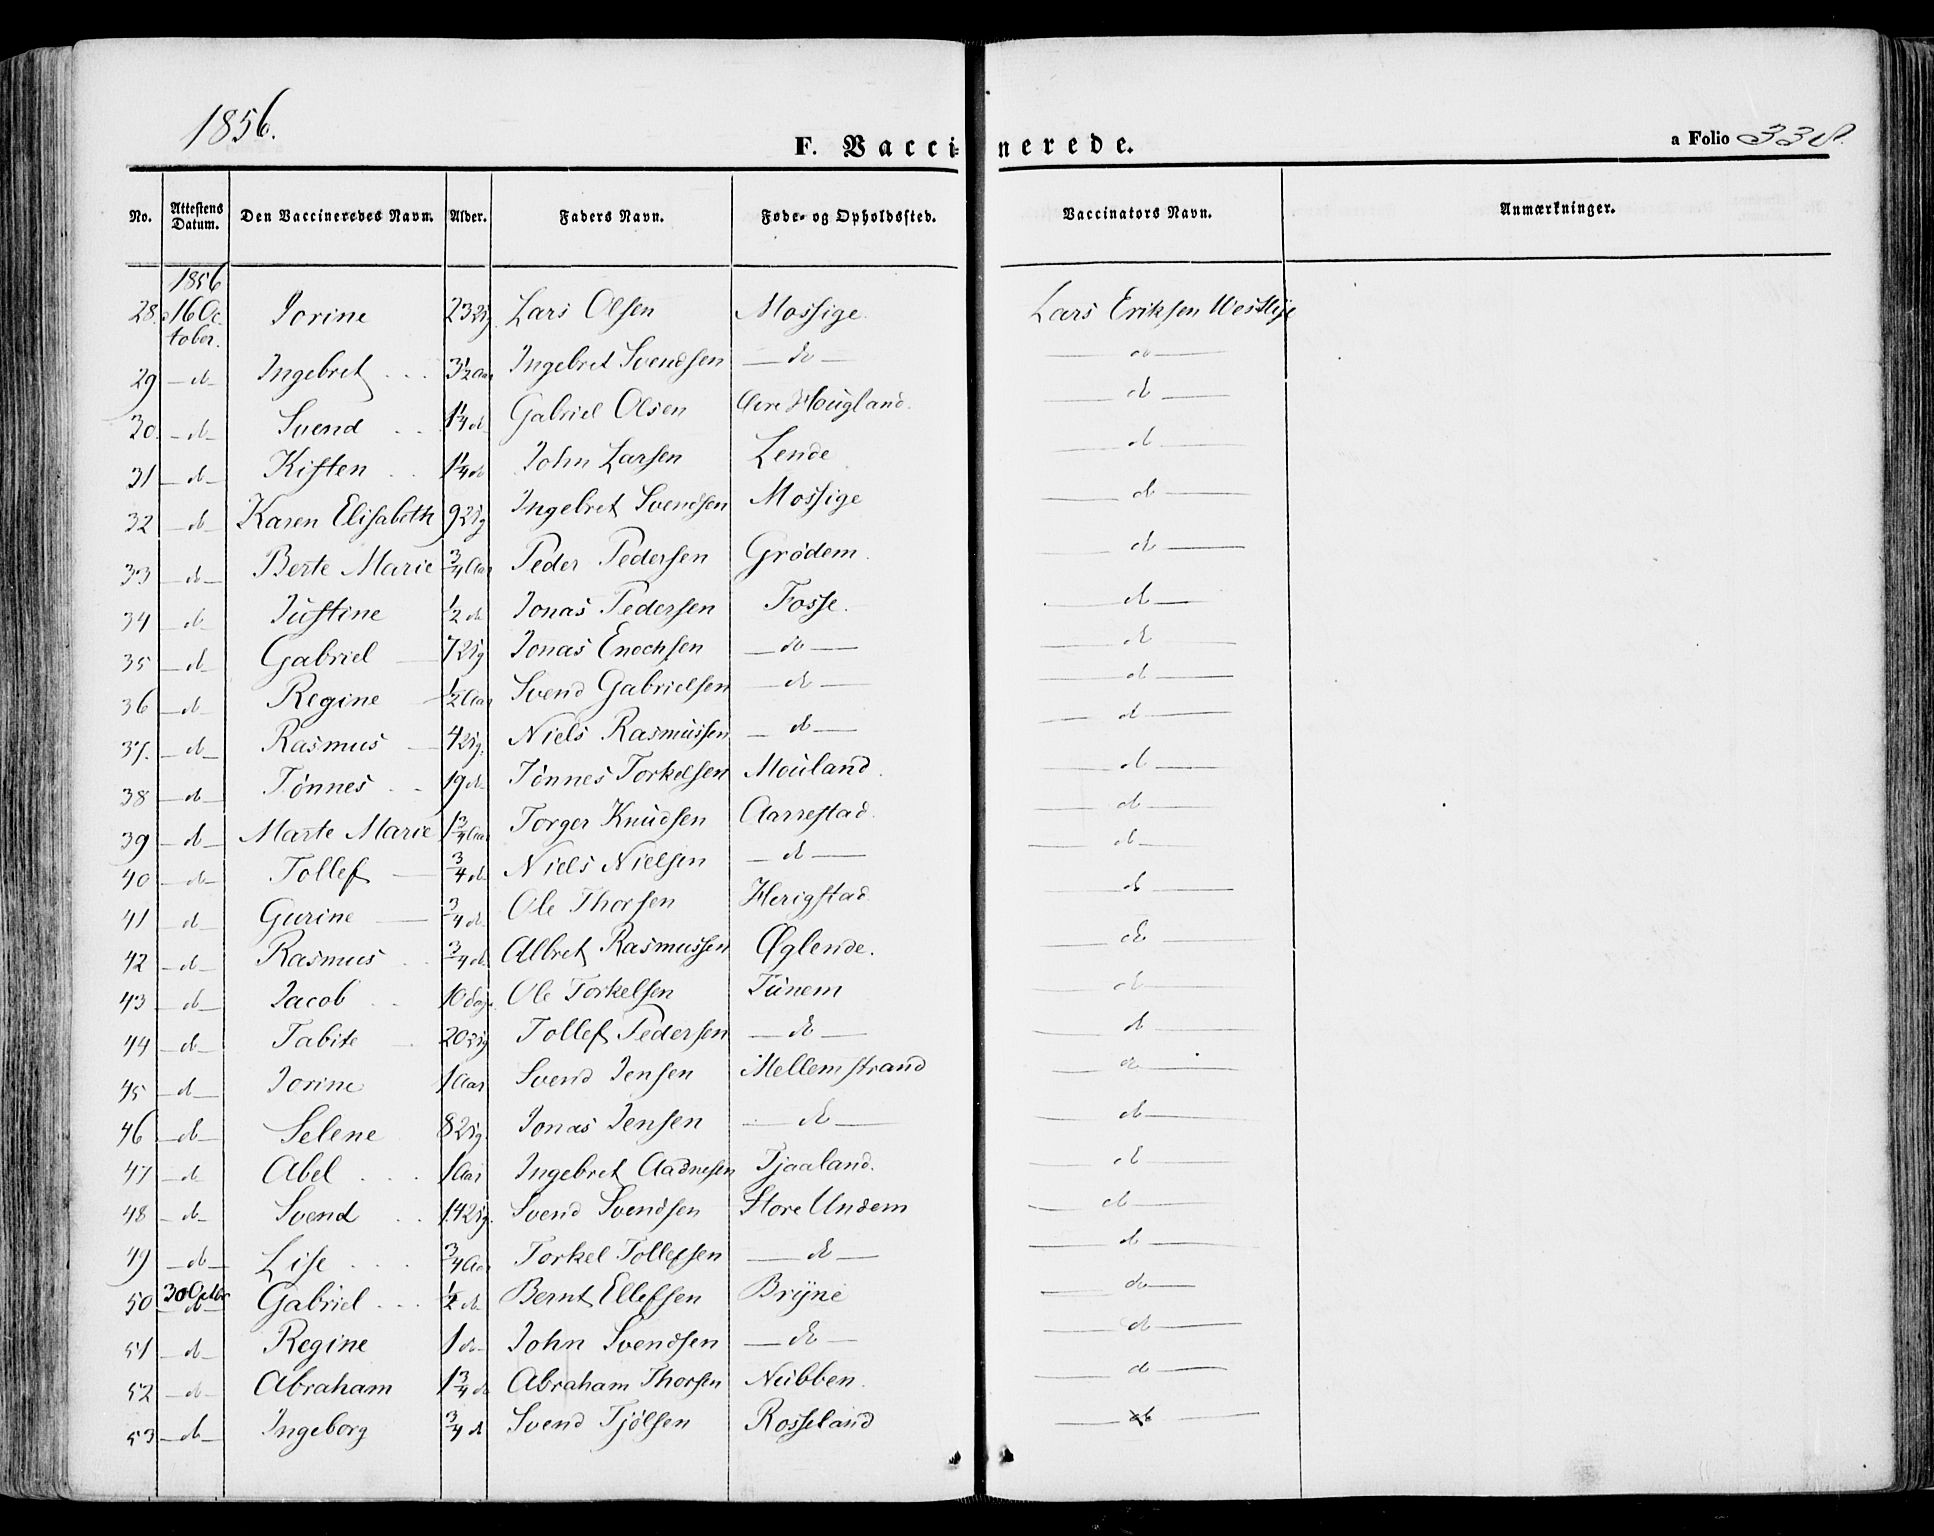 1856.
F. Vaccinerede.
a Folio 338.
No. Attestens Datum. Den Vaccineredes Navn. Alder. Faders Navn. Føde- og Opholdssted. Vaccinators Navn. Anmærkninger.
1856
28. 16 Oc- Jorine 23 Lars Olsen Mossige. Lars Eriksen
tober.
29 -do- Ingebret 3½ Aar Ingebret Svendsen -do- do
30. -do- Svend 1¼ do Gabriel Olsen Hougland. do
31 -do- Kisten 1¼ do John Larsen Lende do
32 -do- Karen Elisabeth 9 Ingebret Svendsen Mossige do
33 -do- Berte Marie ¾ Aar Peder Pedersen Grødem. do
34 -do- Justine ½ do Jonas Pedersen Fosse. do
35 -do- Gabriel 7 Jonas Enochsen -do- do
36 -do- Regine ½ Aar Svend Gabrielsen -do- do
37. -do- Rasmus 4 Niels Rasmussen -do- do
38 -do- Tønnes 19 do Tønnes Torkelsen Mouland. do
39 -do- Marte Marie 1¾ Aar Torger Knudsen Aarrestad. do
40 -do- Tollef ¾ do Niels Nielsen -do- do
41 -do- Gurine ¾ do Ole Thorsen Herigstad. do
42 -do- Rasmus ¾ do Albret Rasmussen Øglende. do
43 -do- Jacob 10 Ole Torkelsen Tunem do
44 -do- Tabite 20 Tollef Pedersen -do- do
45 -do- Jorine 1 Aar Svend Jensen Mellemstrand do
46 -do- Selene 8 Jonas Jensen -do- do
47 -do- Abel 1 Aar Ingebret Aadnesen Tjaaland. do
48 -do- Svend 14 Svend Svendsen Store Undem do
49 -do- Lise ¾ Aar Torkel Tollefsen -do- do
50 30 Octbr Gabriel ½ do Bernt Ellefsen Bryne do
51 -do- Regine 1 do John Svendsen -do- do
52 -do- Abraham 1¾ do Abraham Thorsen Nubben. do
53 -do- Ingeborg ¾ do Svend Tjølsen Rosseland do